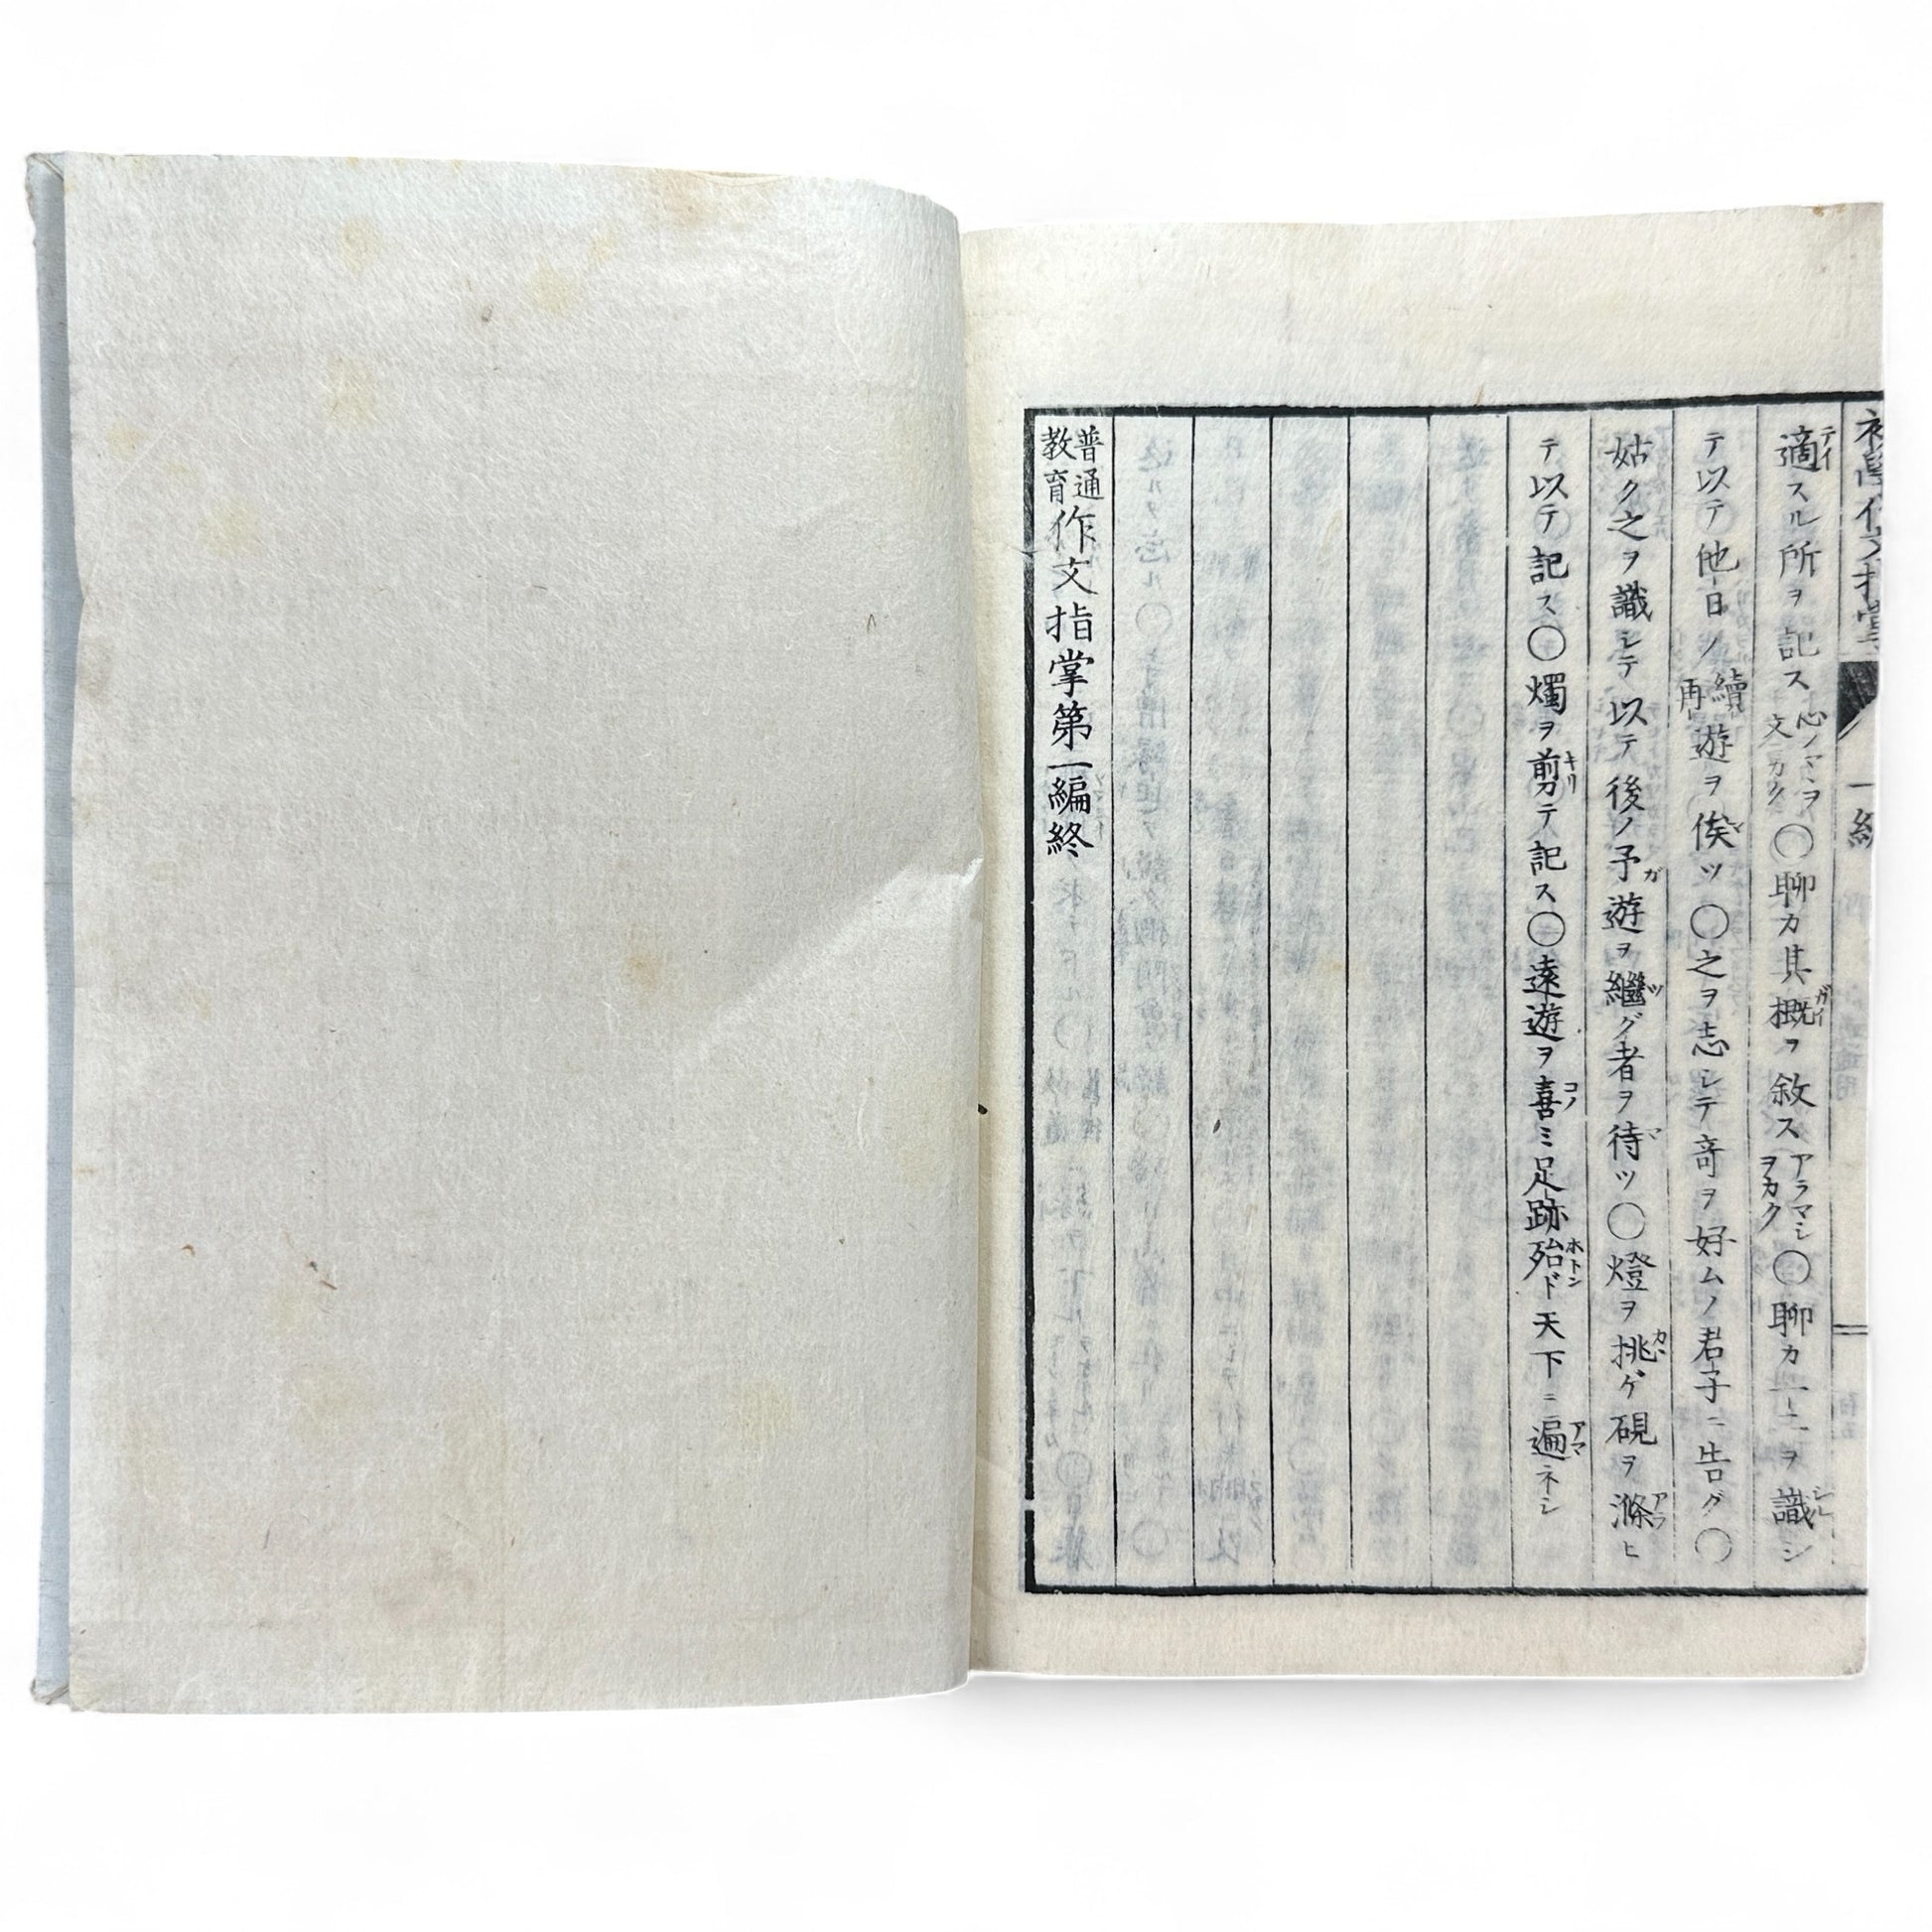 適スル所ヲ記ス心ノマヽヲ文ニカク〇聊カ其概ヲ敘スアラマシヲカク〇聊カ一二ヲ識シ
テ以テ他日ノ續再遊ヲ俟ツ〇之ヲ志シテ奇ヲ好ムノ君子ニ告グ〇
姑ク之ヲ識シテ以テ後ノ予ガ遊ヲ繼グ者ヲ待ツ〇燈ヲ挑ゲ硯ヲ滌ヒ
テ以テ記ス〇燭ヲ剪テ記ス〇遠遊ヲ喜ミ足跡殆ド天下ニ遍ネシ
普通教育作文指掌第一編終